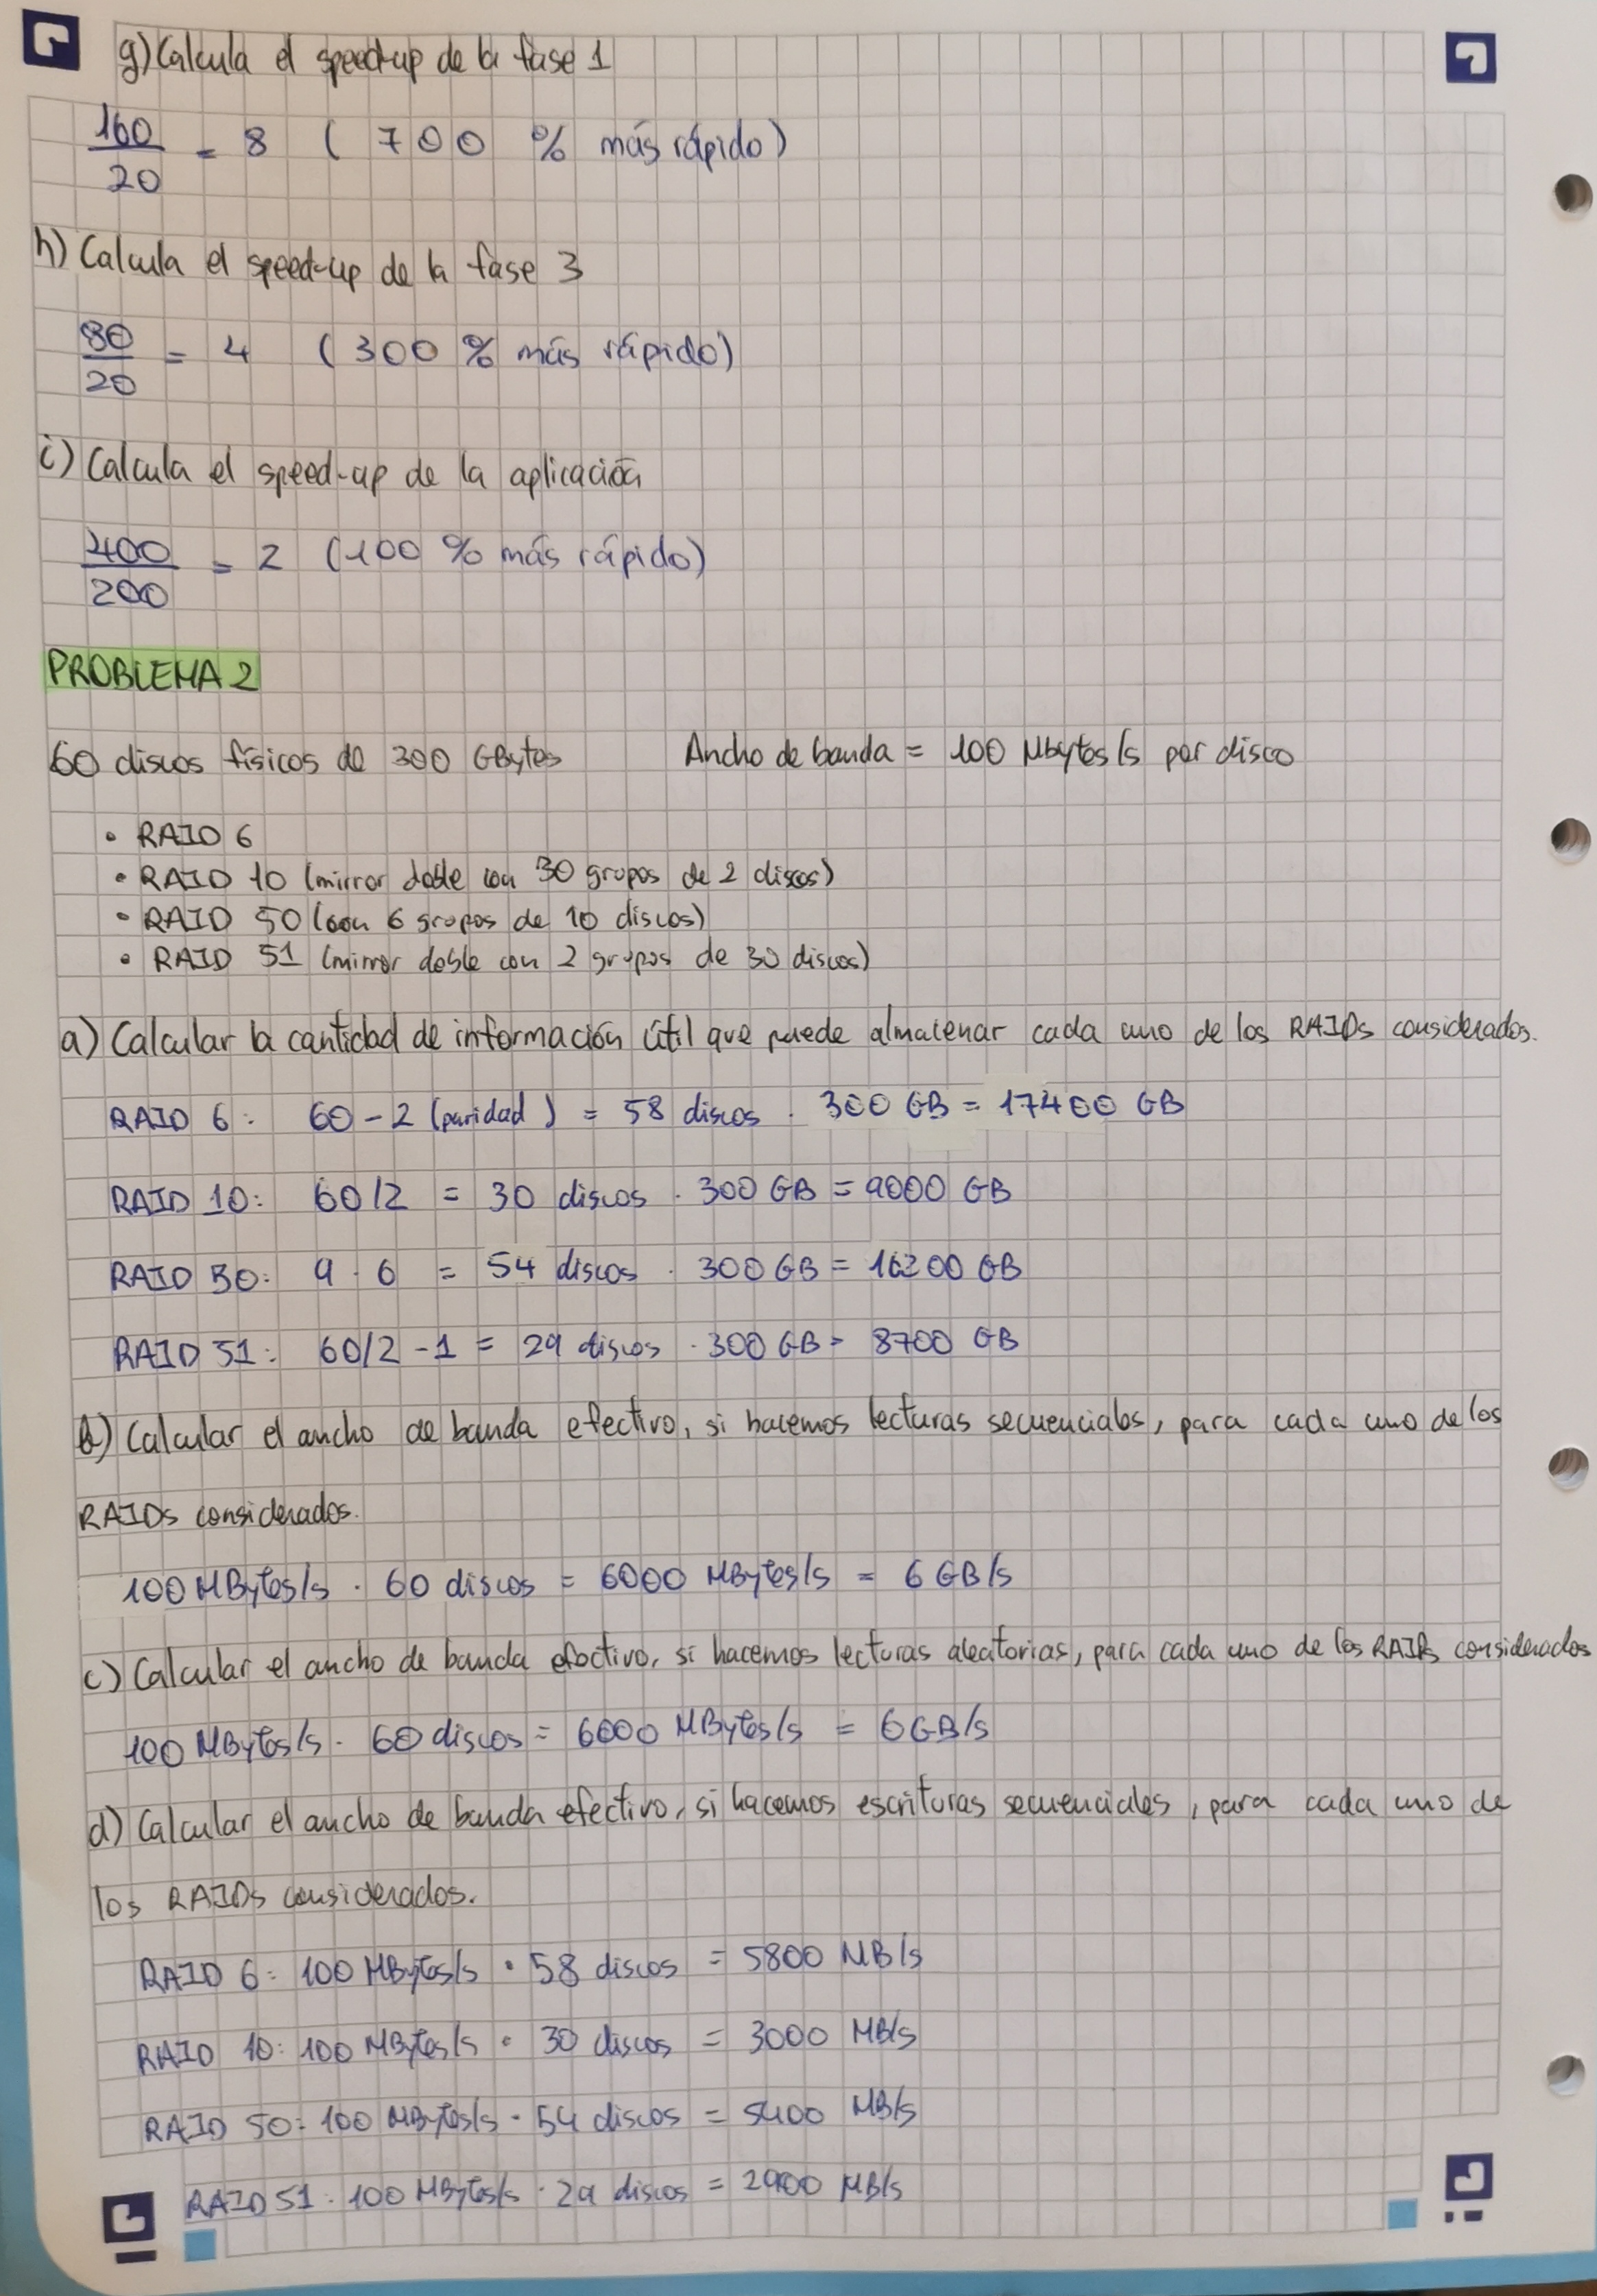 g) Calcula el speed-up de la fase 1
160/20 = 8 (700 % más rápido)
h) Calcula el speed-up de la fase 3
80/20 = 4 (300 % más rápido)
i) Calcula el speed-up de la aplicación
400/200 = 2 (100 % más rápido)
PROBLEMA 2
60 discos físicos de 300 GBytes Ancho de banda = 100 Mbytes/s por disco
• RAID 6
• RAID 10 (mirror doble con 30 grupos de 2 discos)
• RAID 50 (con 6 grupos de 10 discos)
• RAID 51 (mirror doble con 2 grupos de 30 discos)
a) Calcular la cantidad de información útil que puede almacenar cada uno de los RAIDs considerados.
RAID 6: 60 - 2 (paridad) = 58 discos · 300 GB = 17400 GB
RAID 10: 60/2 = 30 discos · 300 GB = 9000 GB
RAID 50: 9 · 6 = 54 discos · 300 GB = 16200 GB
RAID 51: 60/2 - 1 = 29 discos · 300 GB = 8700 GB
b) Calcular el ancho de banda efectivo, si hacemos lecturas secuenciales, para cada uno de los
RAIDs considerados.
100 MBytes/s · 60 discos = 6000 MBytes/s = 6 GB/s
c) Calcular el ancho de banda efectivo, si hacemos lecturas aleatorias, para cada uno de los RAIDs considerados
100 MBytes/s · 60 discos = 6000 MBytes/s = 6 GB/s
d) Calcular el ancho de banda efectivo, si hacemos escrituras secuenciales, para cada uno de
los RAIDs considerados.
RAID 6: 100 MBytes/s · 58 discos = 5800 MB/s
RAID 10: 100 MBytes/s · 30 discos = 3000 MB/s
RAID 50: 100 MBytes/s · 54 discos = 5400 MB/s
RAID 51: 100 MBytes/s · 29 discos = 2900 MB/s